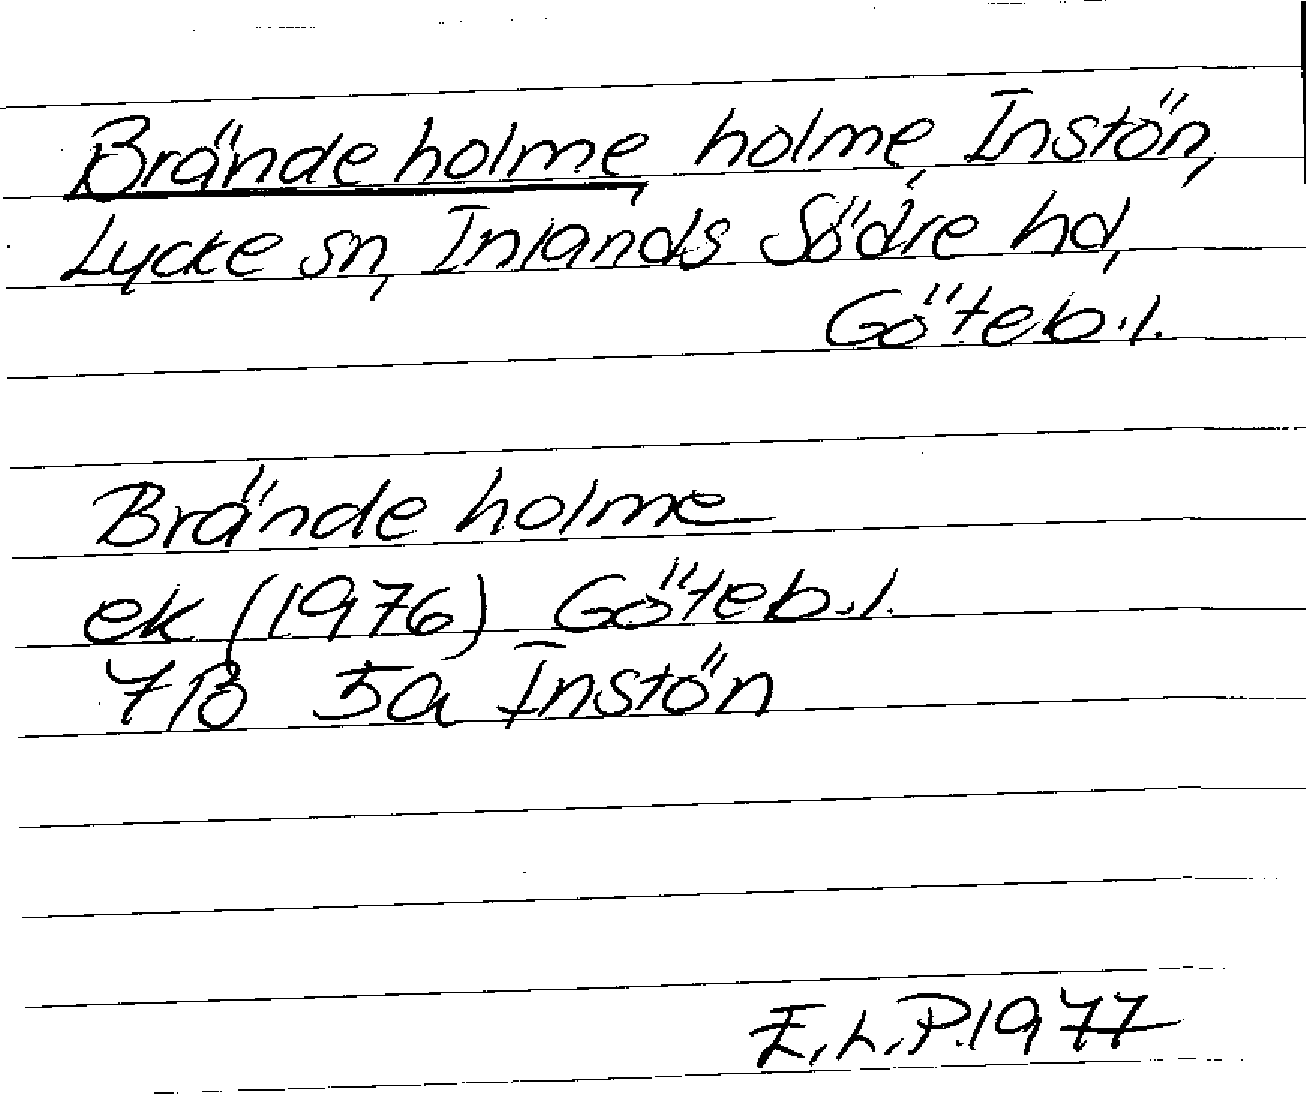 Brände holme, holme, Instön,
Lycke sn, Inlands Södre hd,
Göteb.l.
Brände holme
ek (1976) Göteb.l.
7B 5a Instön
E.L.P. 1977